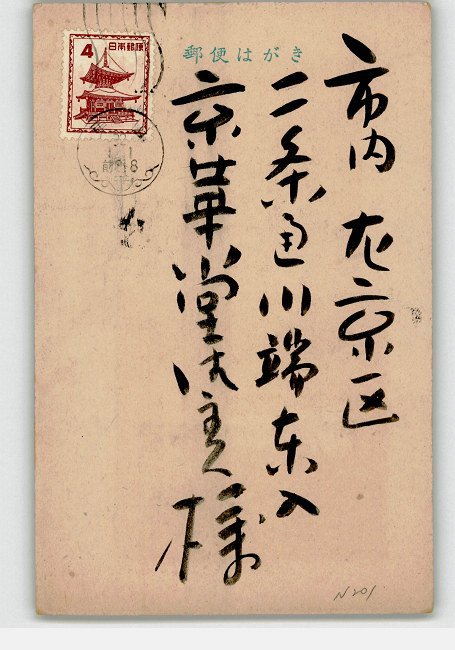 郵便はがき
4
日本郵便
前 8-8
市内 左京区
二条通川端東入
京華堂御主人
様
N201